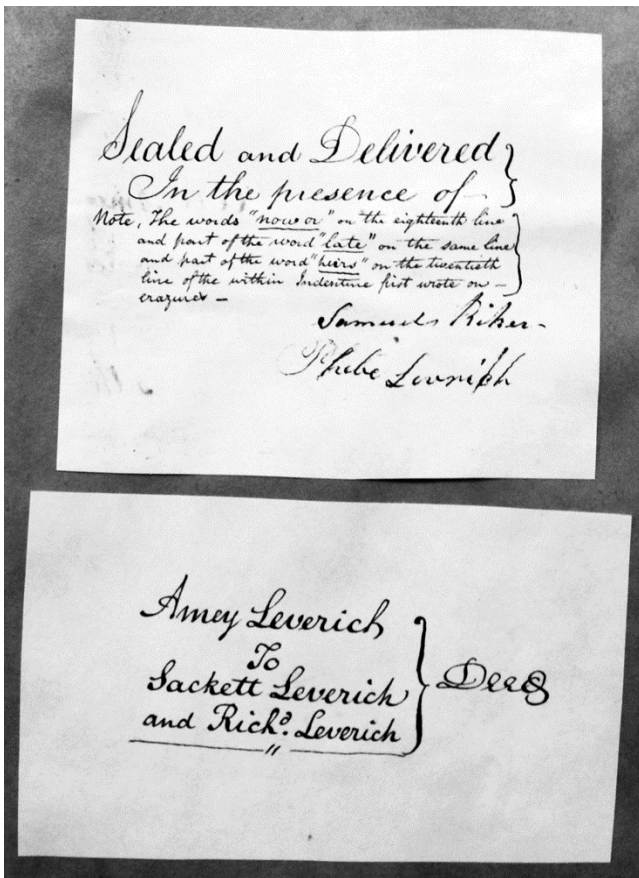 Sealed and Delivered
In the presence of —
Note, The words "now or" on the eighteenth line
and part of the word "late" on the same line
and part of the word "heirs" on the twentieth
line of the within Indenture first wrote on —
erazures —
Samuel Riker
Phebe Leverich
Amey Leverich
To
Sackett Leverich
and Rich.d Leverich
Deed